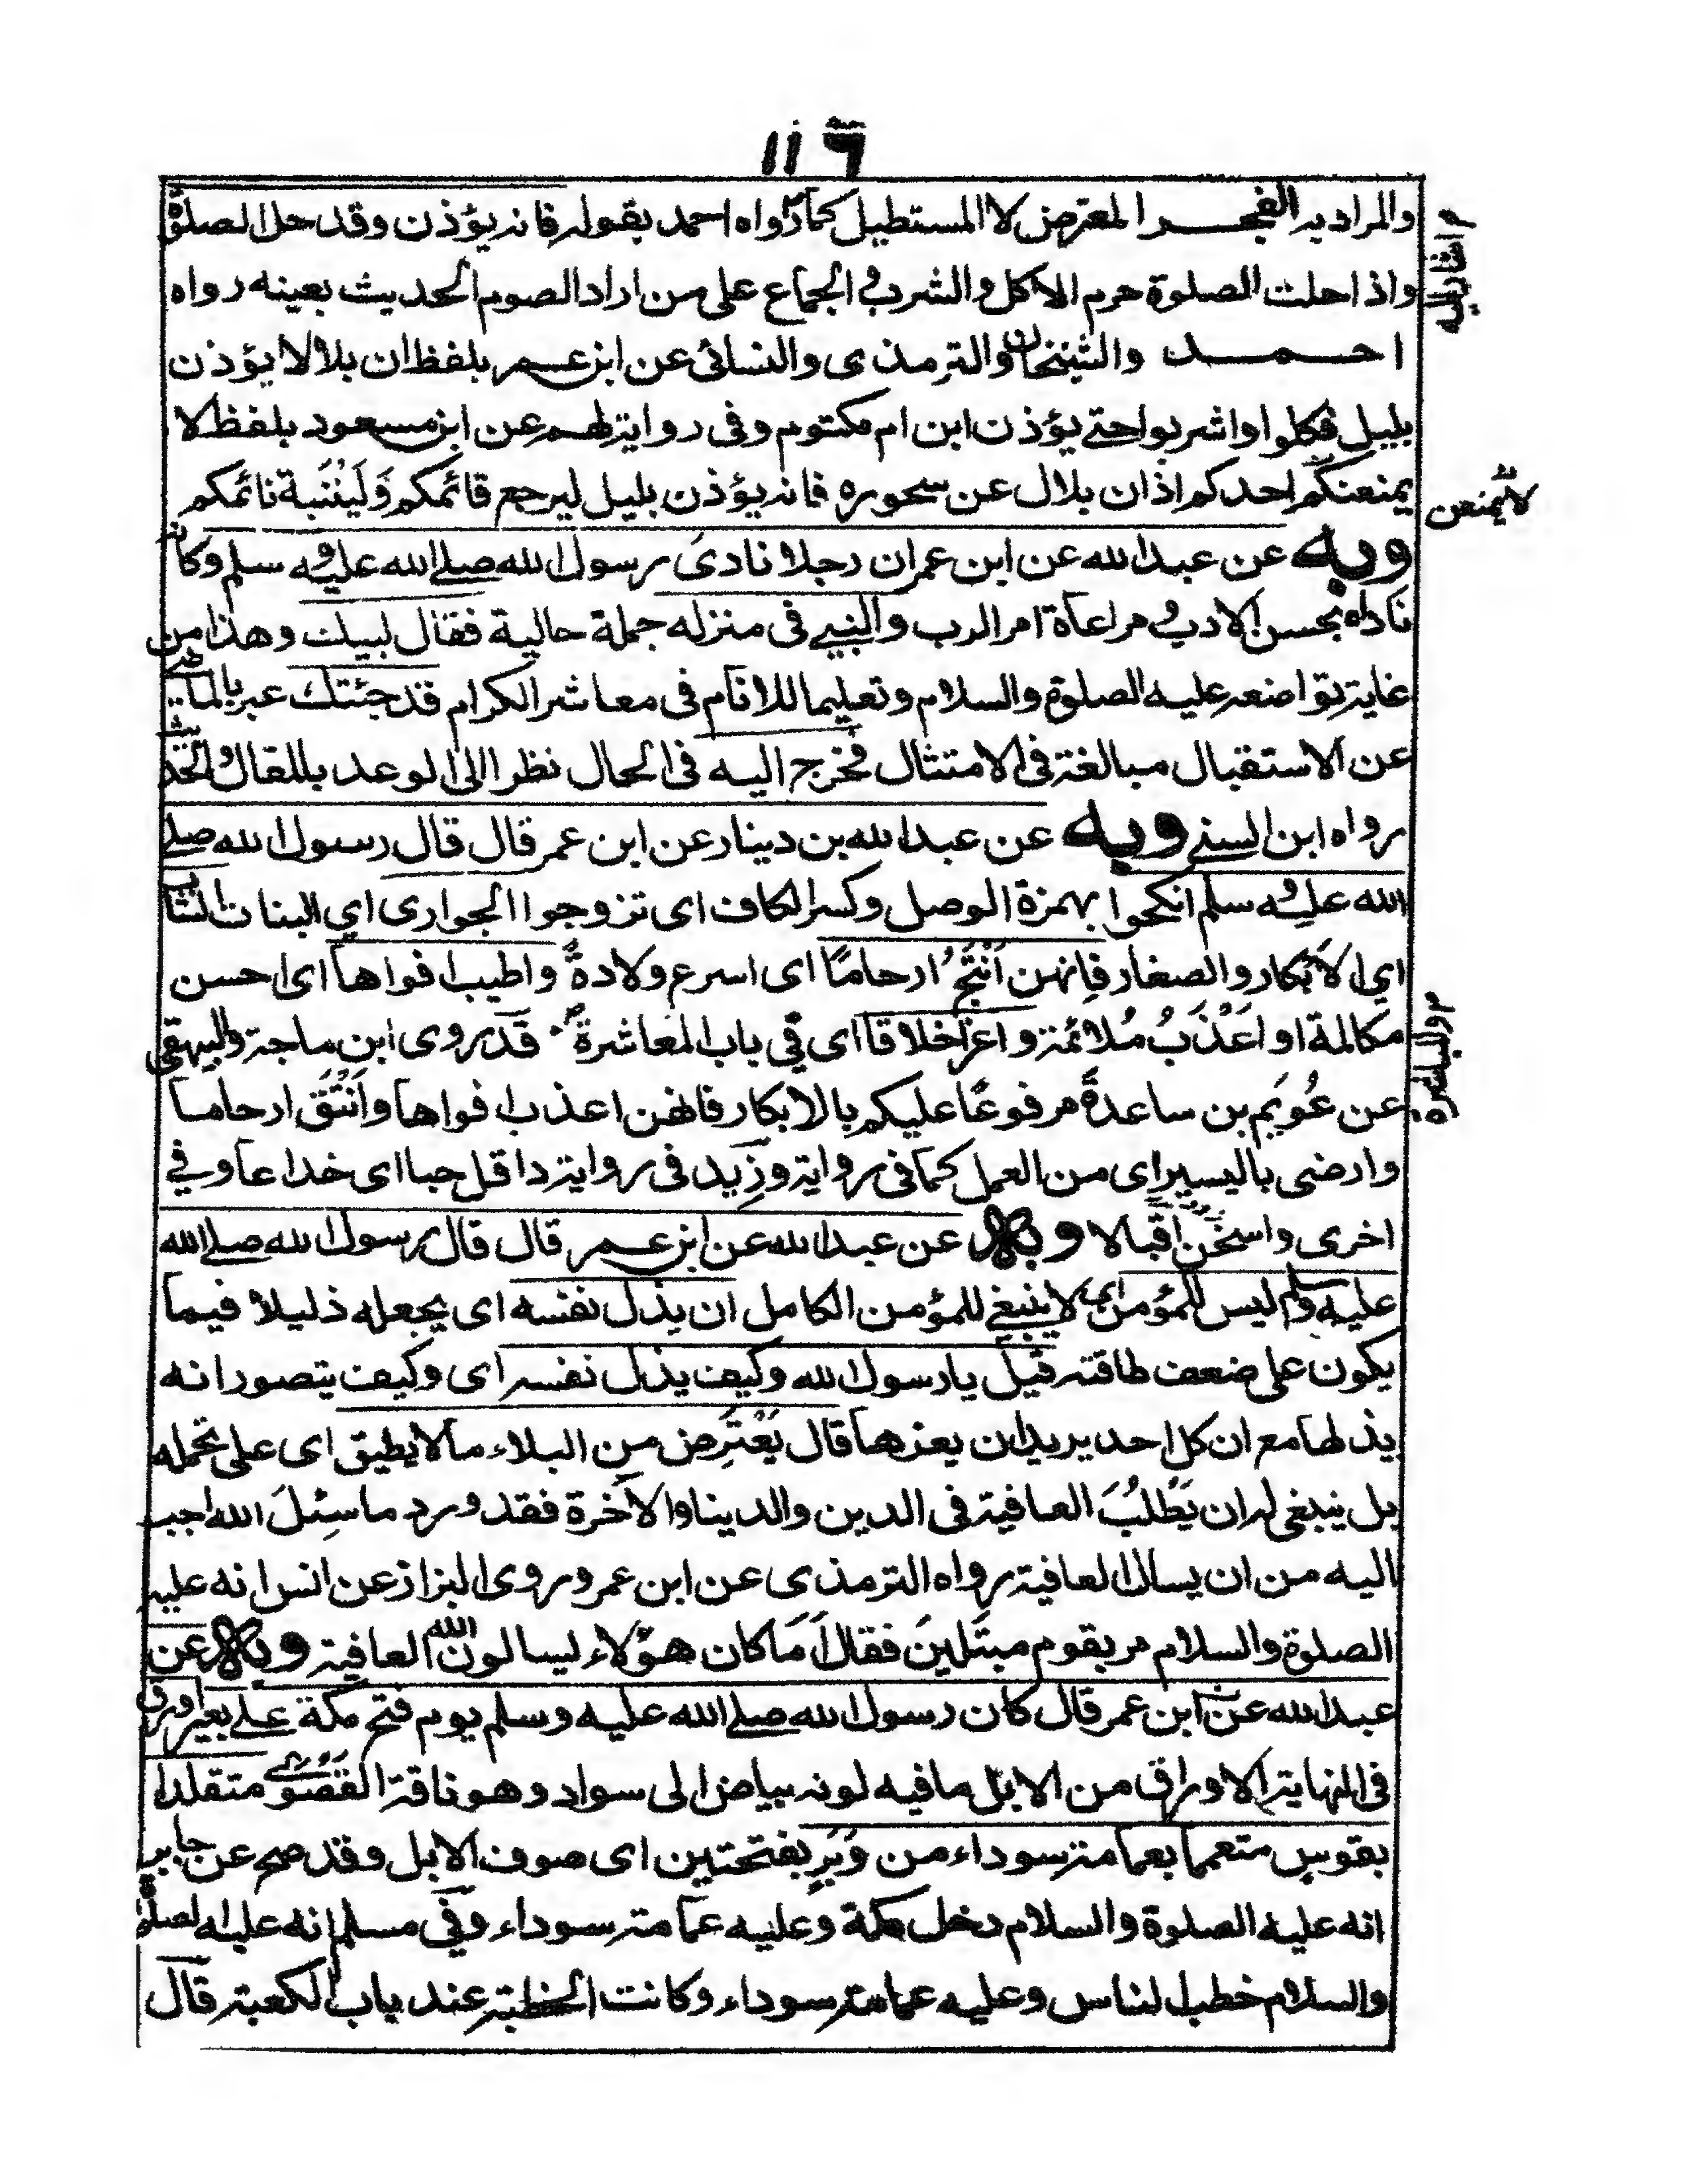 ١١٦
والمراد به الفجر المعترض لا المستطيل كما رواه احمد بقوله فانه يؤذن وقد حل الصلوة
واذا حلت الصلوة حرم الاكل والشرب و الجماع على من اراد الصوم الحديث بعينه رواه
احمد والشيخان والترمذى والنسائى عن ابن عمر بلفظ ان بلالا يؤذن
بليل فكلوا واشربوا حتى يؤذن ابن ام مكتوم وفى رواية لهم عن ابن مسعود بلفظ لا
يمنعنكم احدكم اذان بلال عن سحوره فانه يؤذن بليل ليرجع قائمكم وَلَيُنَبّة نائمكم
لا يمنعن
وبه عن عبد الله عن ابن عمر ان رجلا نادى رسول الله صلے الله عليه و سلم وكان
ناداه بحسن الادب و مراعاة امر الرب والنبے فى منزله جملة حالية فقال لبيك وهذا من
غاية تواضعه عليه الصلوة والسلام وتعليما للانام فى معاشر الكرام قد جئتك عبر بالماضے
عن الاستقبال مبالغة فى الامتثال فخرج اليه فى الحال نظرا الى الوعد بالمقال و الحديث
رواه ابن السنے وبه عن عبد الله بن دينار عن ابن عمر قال قال رسول الله صلے
الله عليه و سلم انكحوا بهمزة الوصل وكسر الكاف اى تزوجوا الجوارى اي البنات الشاب
اي الابكار والصغار فانهن اَنْتَجُ ارحامًا اى اسرع ولادةً واطيب افواها اى احسن
مكالمة او اَعْذَبُ مُلائمة و اعز اخلاقا اى في باب المعاشرة قد روى ابن ماجة والبيهقى
عن عُوَيم بن ساعدةً مرفوعًا عليكم بالابكار فانهن اعذب افواها وانْتَق ارحاما
وارضى باليسير اى من العمل كما فى رواية وزِيد فى رواية واقل حبا اى خداعا وفي
اخرى واسخن اقبالا وبه عن عبد الله عن ابن عمر قال قال رسول الله صلے الله
عليه وسلم ليس للمؤمن اى لا ينبغے للمؤمن الكامل ان يذل نفسه اى يجعله ذليلا فيما
يكون على ضعف طاقته قيل يا رسول الله وكيف يذل نفسه اى وكيف يتصور انه
يذلها مع ان كل احد يريد ان يعزها قال يَعْترِض من البلاء مالا يطيق اى على تحمله
بل ينبغى له ان يَطْلُبَ العافية فى الدين والدينا والاخرة فقد ورد ما سئِلَ الله احب
اليه من ان يسال العافية رواه الترمذى عن ابن عمر وروى البزاز عن انس انه عليه
الصلوة والسلام مر بقوم مبتَلينَ فقال اَمَا كان هؤلاء ليسالون الله العافية وبه عن
عبد الله عن ابن عمر قال كان رسول الله صلے الله عليه وسلم يوم فتح مكة علے بعير اورق
فى النهاية الاوراق من الابل ما فيه لونه بياض الى سواد وهو ناقة القَصْوٰى متقلدا
بقوس متعمما بعمامة سوداء من وَبَرٍ بفتحتين اى صوف الابل وقد صح عن جابر
انه عليه الصلوة والسلام دخل مكة وعليه عمامة سوداء وفي مسلم انه عليه الصلوة
والسلام خطب الناس وعليه عمامة سوداء وكانت الخطبة عند باب الكعبة قال